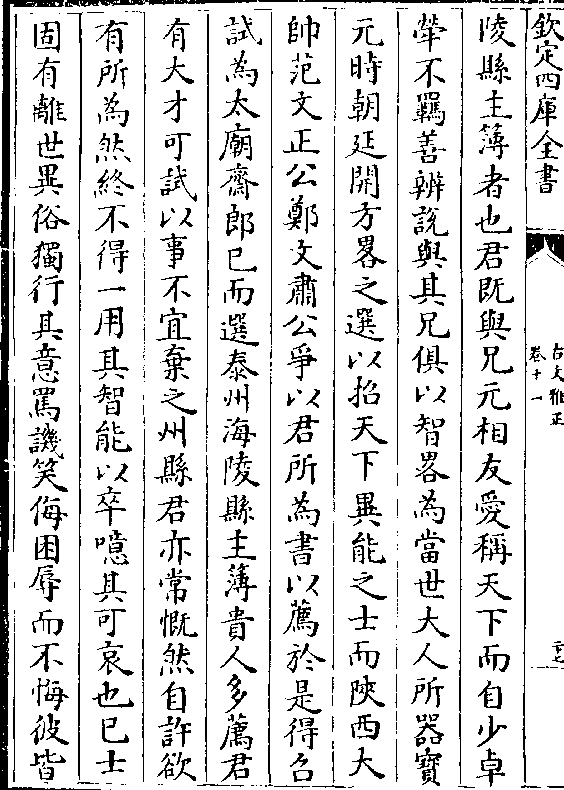 欽定四庫全書
古文雅正
卷十一
二十七
陵縣主簿者也君既與兄元相友愛稱天下而自少卓
犖不羈善辨說與其兄俱以智畧為當世大人所器寳
元時朝廷開方畧之選以招天下異能之士而陜西大
帥范文正公鄭文肅公爭以君所為書以薦於是得召
試為太廟齋郎已而選泰州海陵縣主簿貴人多薦君
有大才可試以事不宜棄之州縣君亦常慨然自許欲
有所為然終不得一用其智能以卒噫其可哀也已士
固有離世異俗獨行其意罵譏笑侮困辱而不悔彼皆